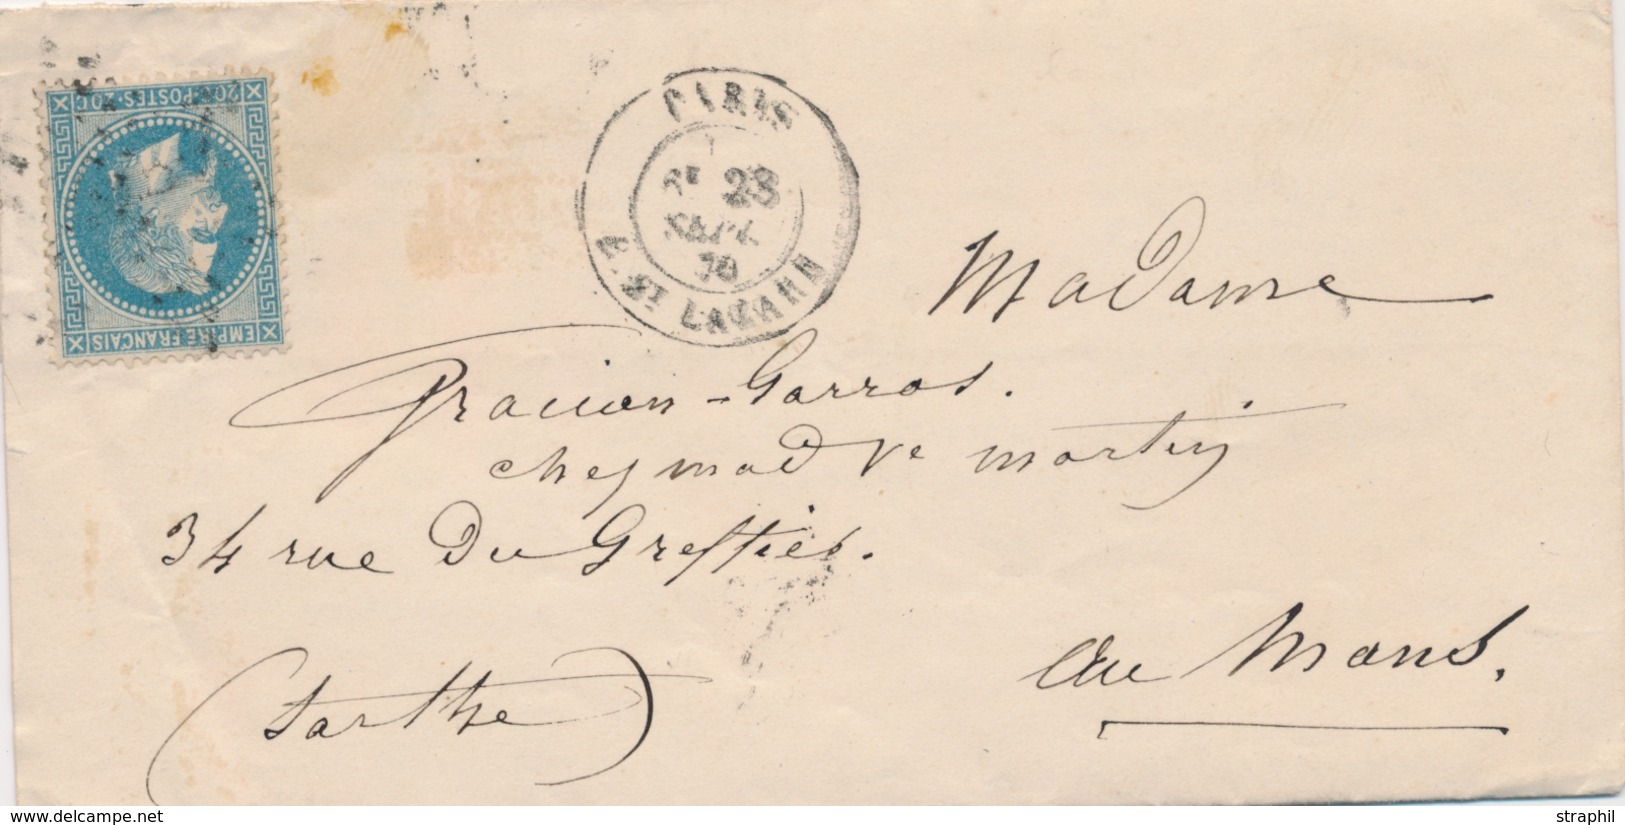 20 C POSTES 20 C
EMPIRE FRANÇAIS
PARIS
6E 28
SEPT.
70
R. ST LAZARE
Madame
Gracien-Garros.
chez mad Ve Martin
34 rue Du Greffier.
au Mans.
(Sarthe)
www.delcampe.net
straphil